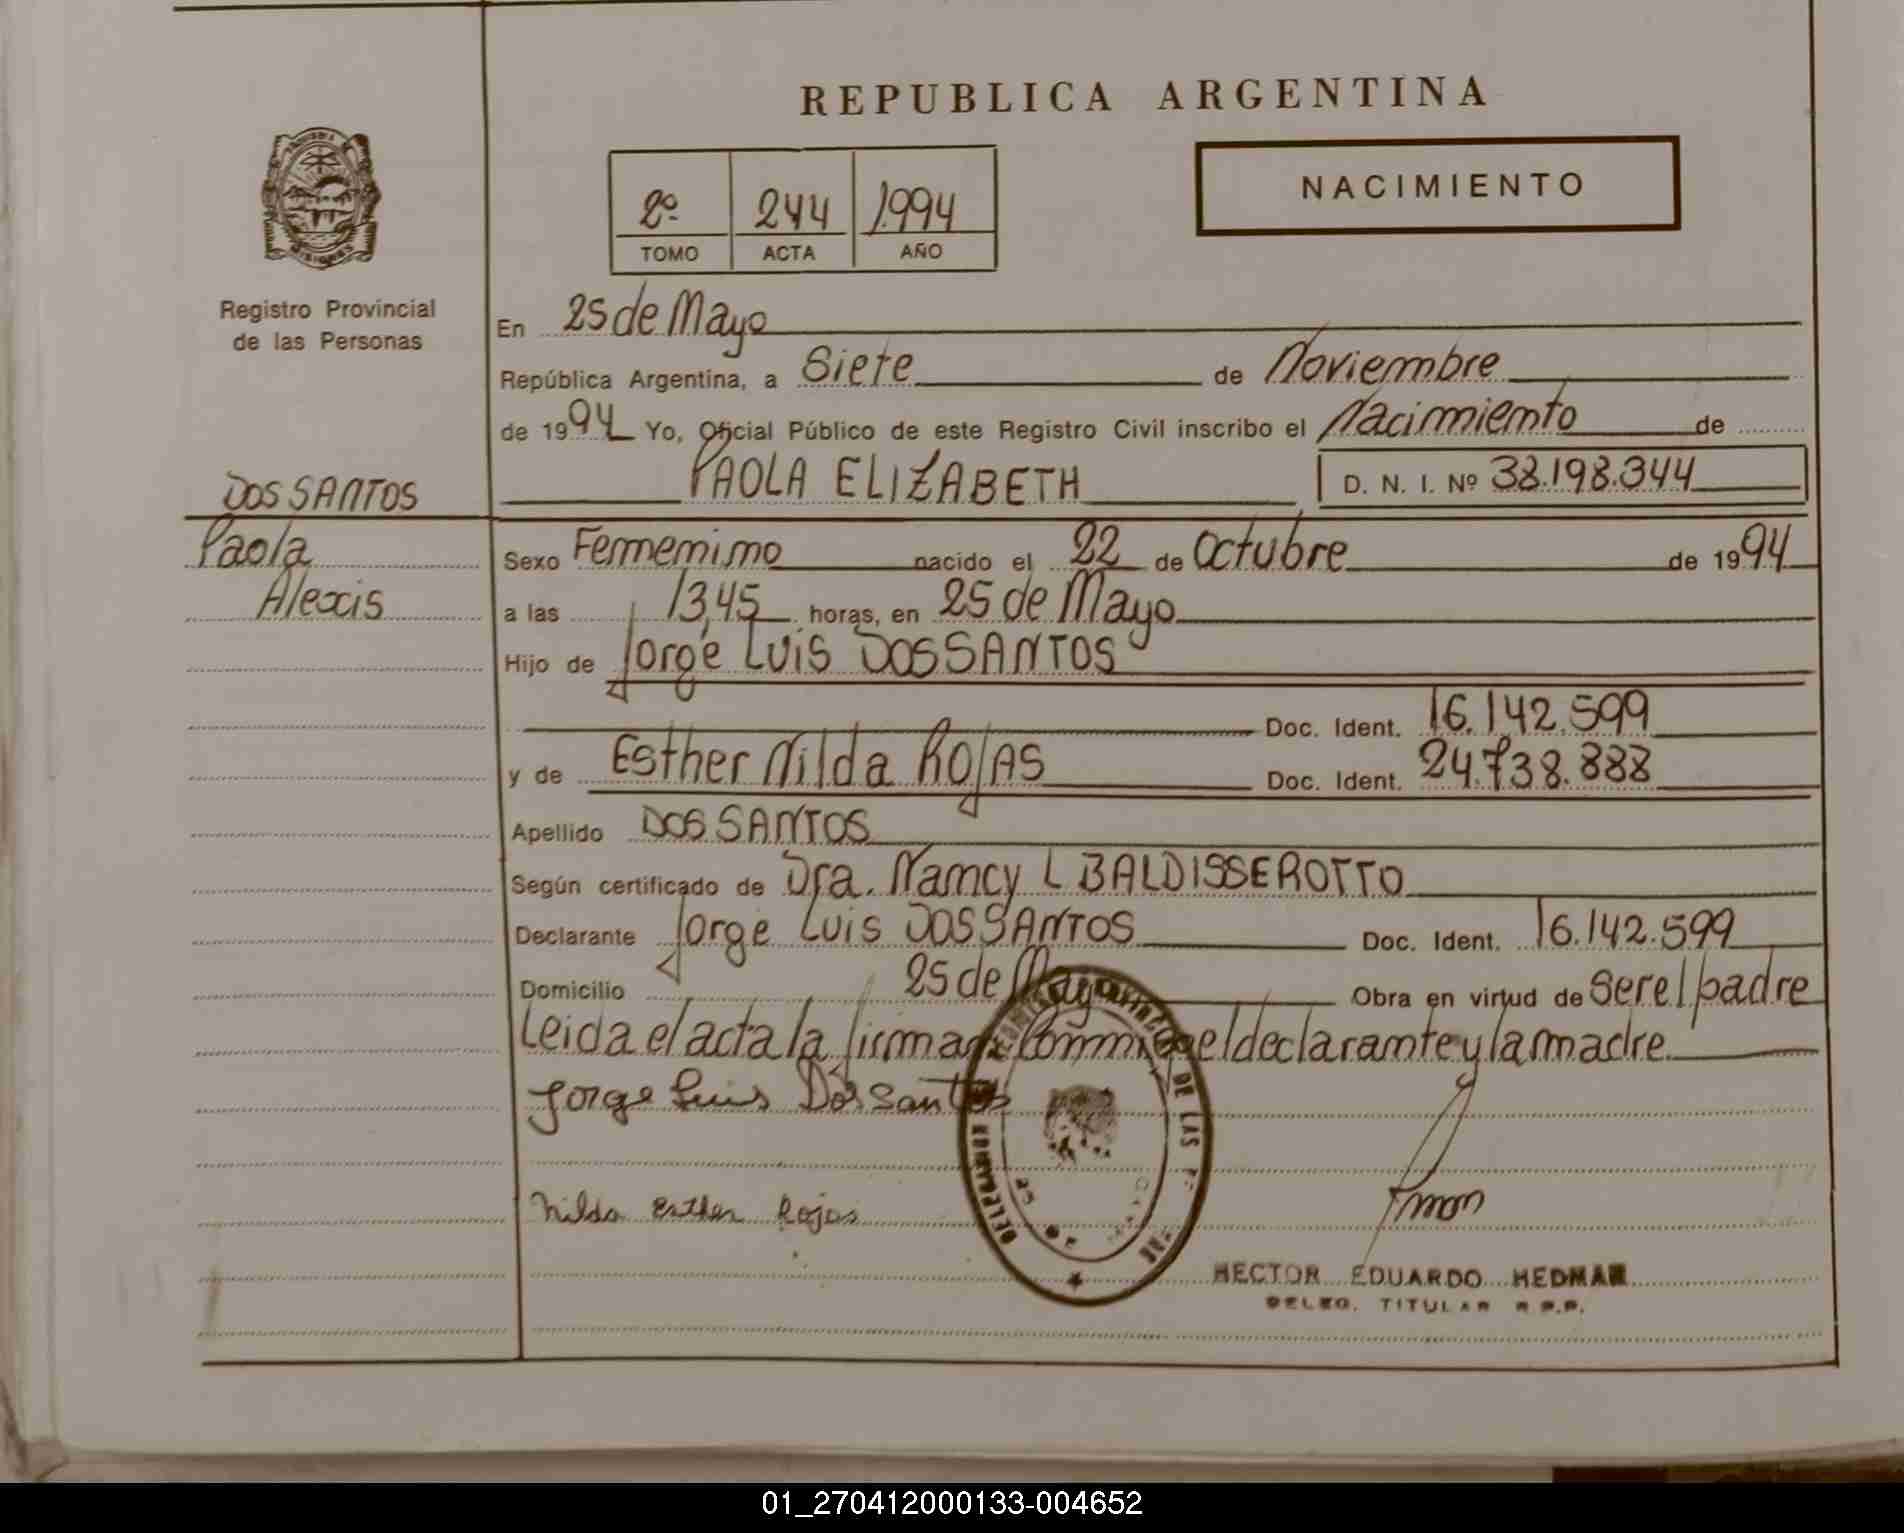 REPUBLICA ARGENTINA
NACIMIENTO
2º 244 1994
TOMO ACTA AÑO
MISIONES
Registro Provincial
de las Personas
En 25 de Mayo
República Argentina, a Siete de Noviembre
de 1994 Yo, Oficial Público de este Registro Civil inscribo el Nacimiento de
PAOLA ELIZABETH D. N. I. Nº 38.198.344
DOS SANTOS
Paola
Alexis
Sexo Femenino nacido el 22 de Octubre de 1994
a las 13,45 horas, en 25 de Mayo
Hijo de Jorge Luis DOS SANTOS
Doc. Ident. 16.142.599
y de Esther Nilda ROJAS Doc. Ident. 24.738.888
Apellido DOS SANTOS
Según certificado de Dra. Nancy L BALDISSEROTTO
Declarante Jorge Luis DOS SANTOS Doc. Ident. 16.142.599
Domicilio 25 de Mayo Obra en virtud de ser el padre
Leida el acta la firman conmigo el declarante y la madre
Jorge Luis Dos Santos
Nilda Esther Rojas
DE LAS
HECTOR EDUARDO HEDMAN
DELEG. TITULAR R.P.P.
01_270412000133-004652